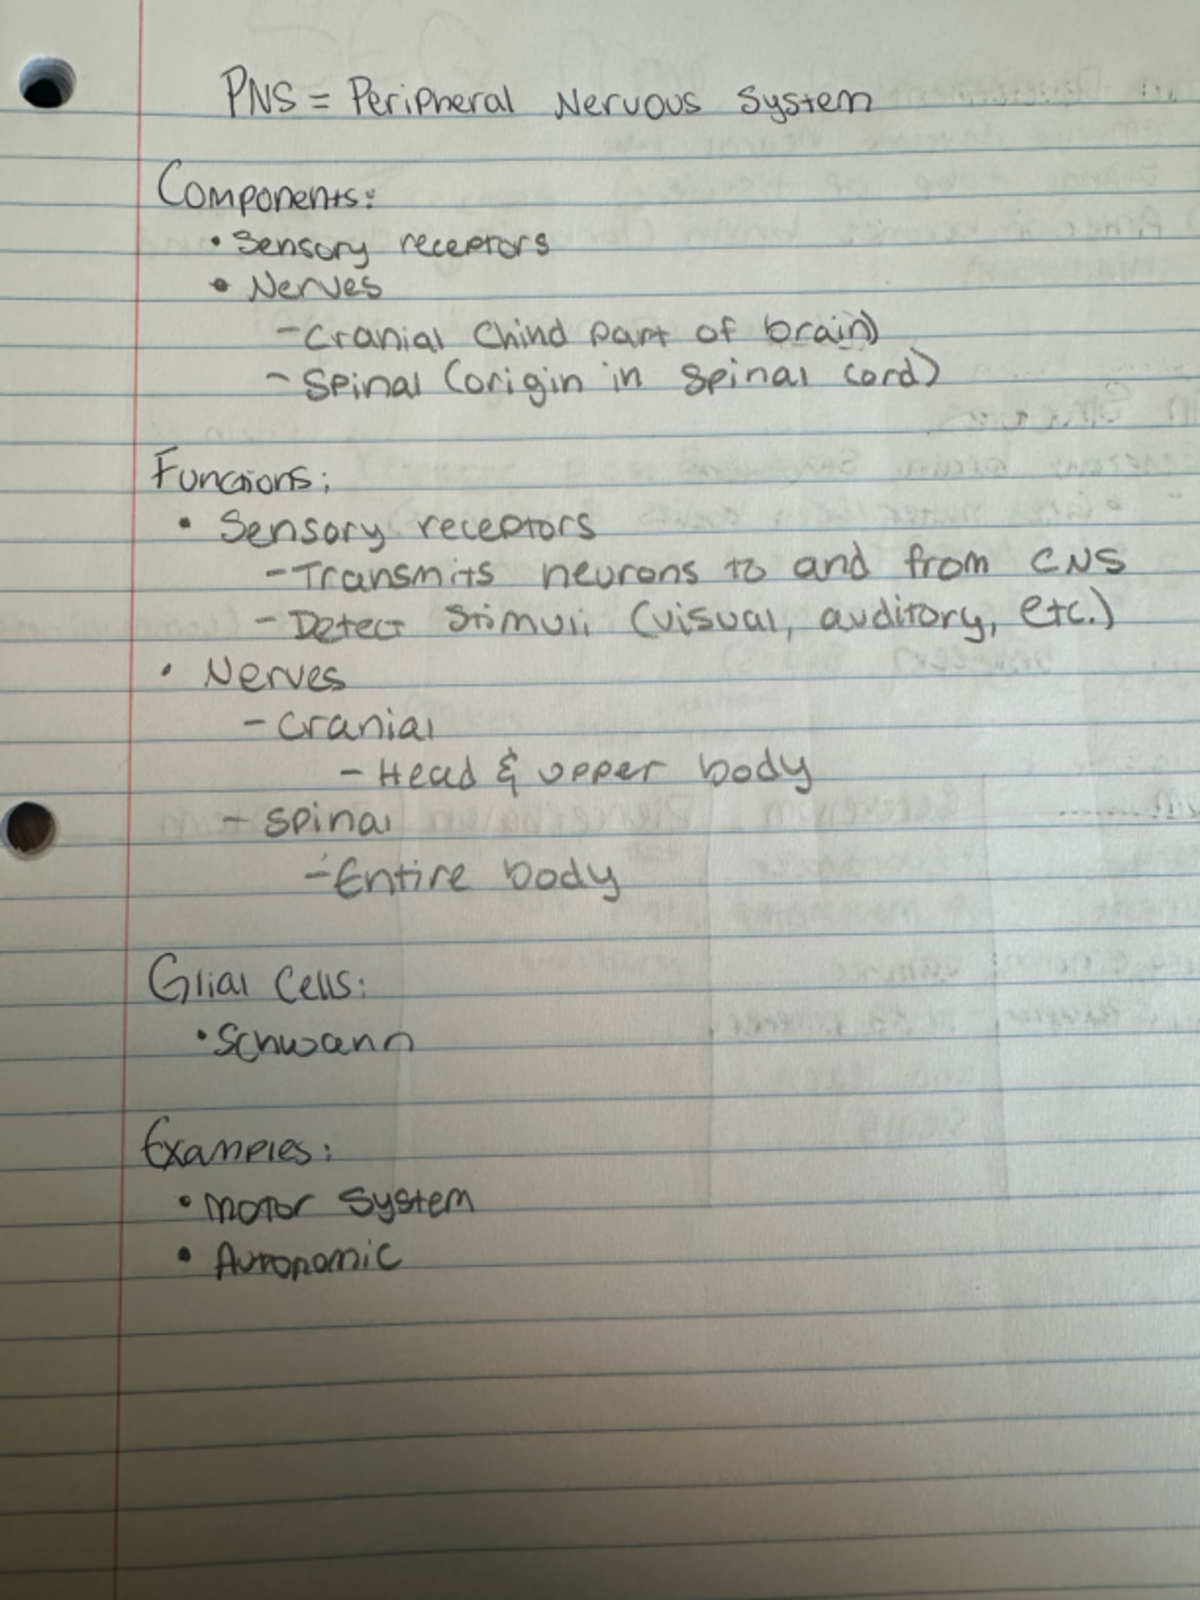 PNS = Peripheral Nervous System
Components:
• Sensory receptors
• Nerves
- Cranial (hind part of brain)
- Spinal (origin in spinal cord)
Functions:
• Sensory receptors
- Transmits neurons to and from CNS
- Detect stimuli (visual, auditory, etc.)
• Nerves
- Cranial
- Head & upper body
- spinal
- Entire body
Glial Cells:
• Schwann
Examples:
• Motor System
• Autonomic